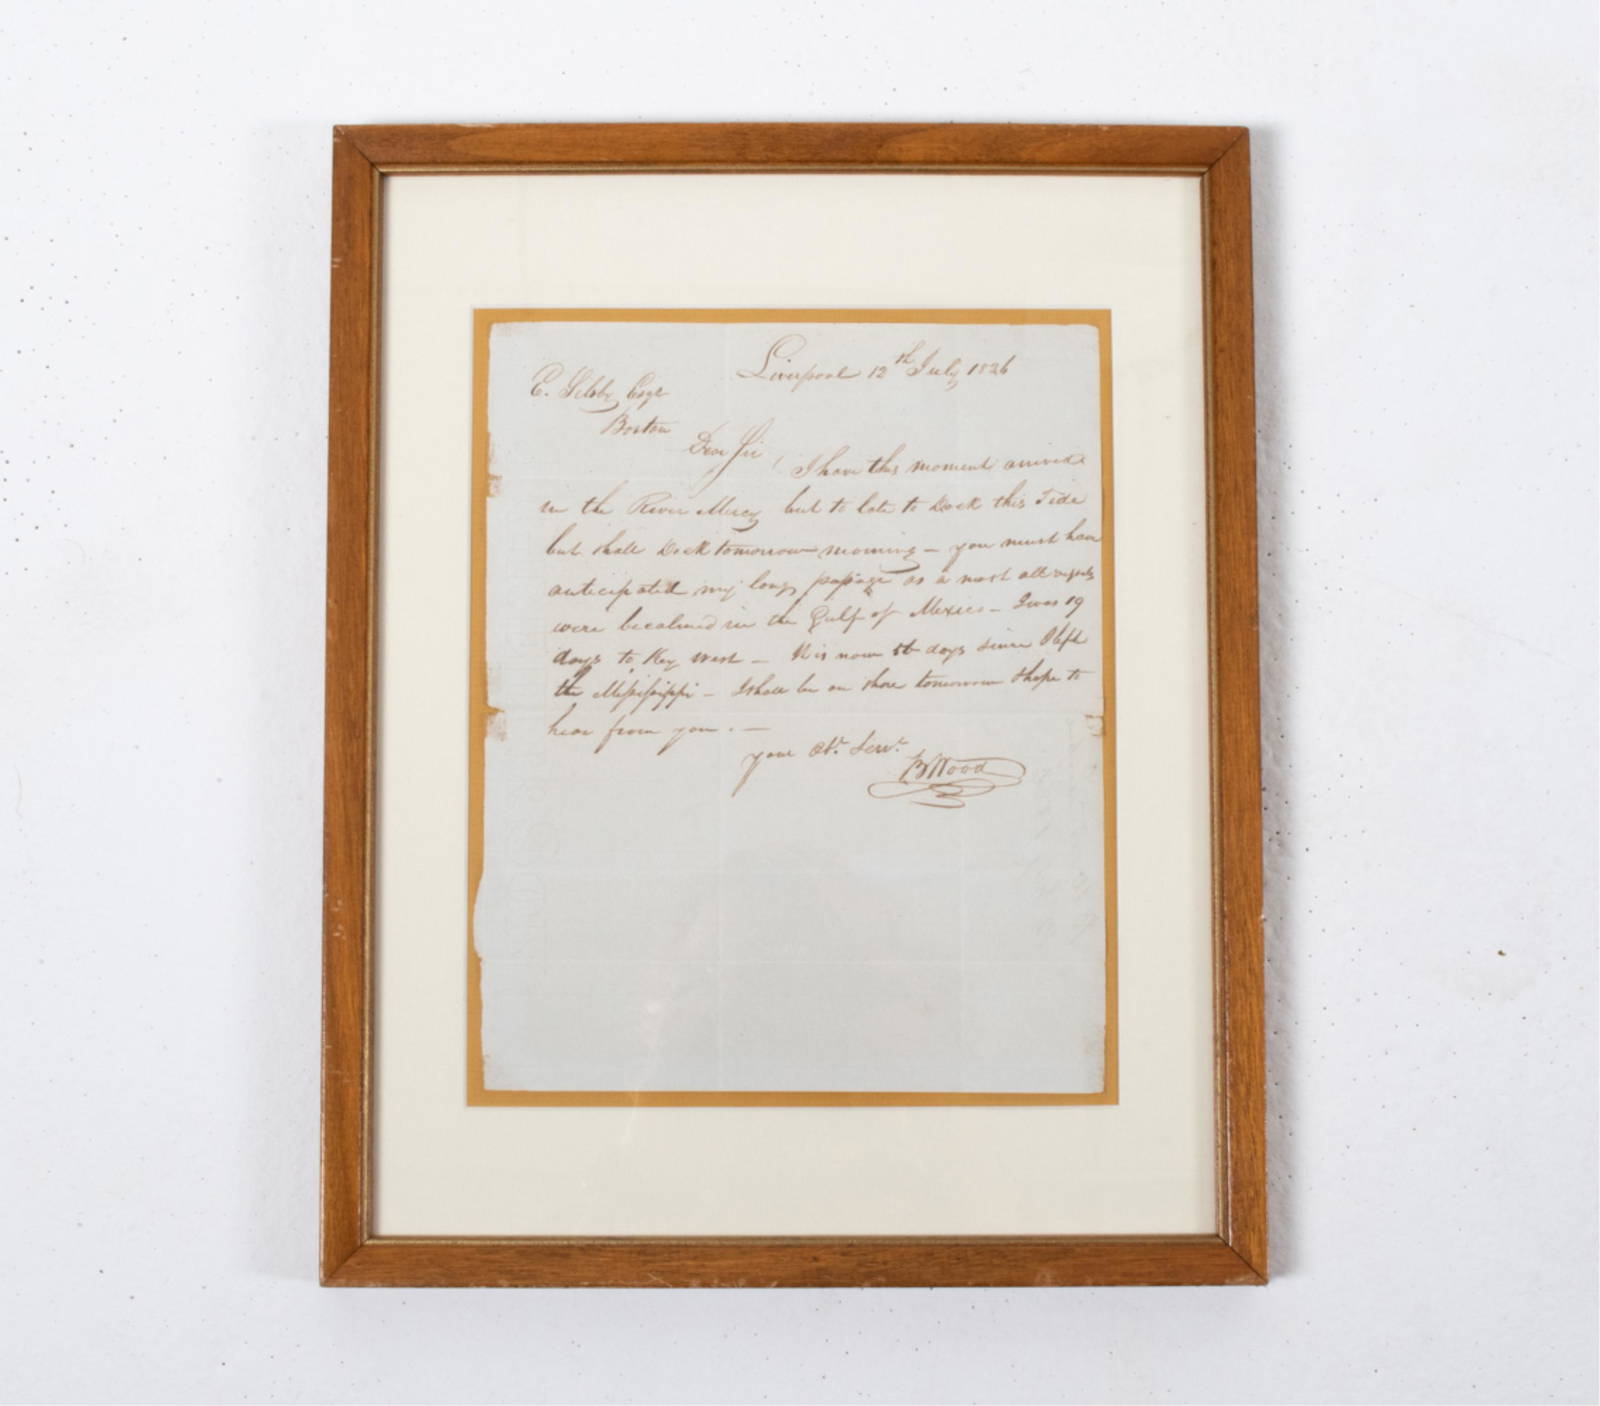 Liverpool 12th July 1826
E. Esqr
Boston
Dear Sir
I have this moment arrived
in the River Mercy but to late to Dock this Tide
but shall Dock tomorrow morning – you must have
anticipated my long passage as a most all vessels
were becalmed in the Gulf of Mexico – I was 19
days to Key west – It is now days since I left
the Mississippi – I shall be on shore tomorrow & hope to
hear from you. –
your Obt. Servt.
B Wood